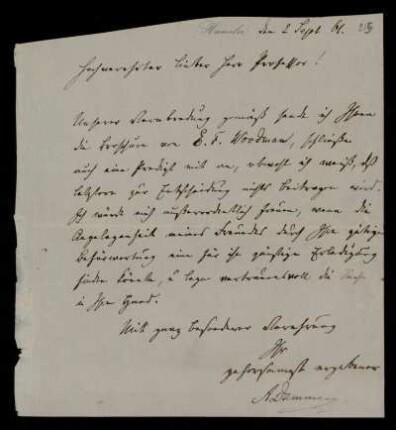 den 2 Sept. 61.
Hochverehrter lieber Herr Professor!
Unserer Verabredung gemäß sende ich Ihnen
die Broschüre von E. F. Woodman, schließe
auch eine Predigt mit an, obwohl ich weiß, daß
letztere zur Entscheidung nichts beitragen wird.
Ich würde mich außerordentlich freuen, wenn die
Angelegenheit meines Freundes durch Ihre gütige
Befürwortung eine für ihn günstige Erledigung
finden könnte, u. lege vertrauensvoll die Sache
in Ihre Hand.
Mit ganz besonderer Verehrung
Ihr
gehorsamst ergebener